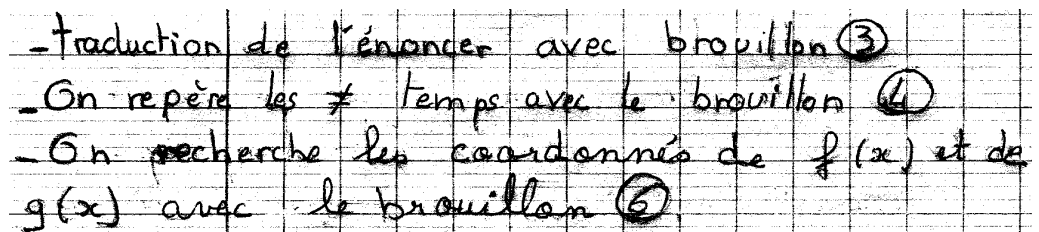 - traduction de l'énoncer avec brouillon ③
- On repère les ≠ temps avec le brouillon ④
- On recherche les coordonnés de f(x) et de
g(x) avec le brouillon ⑥.